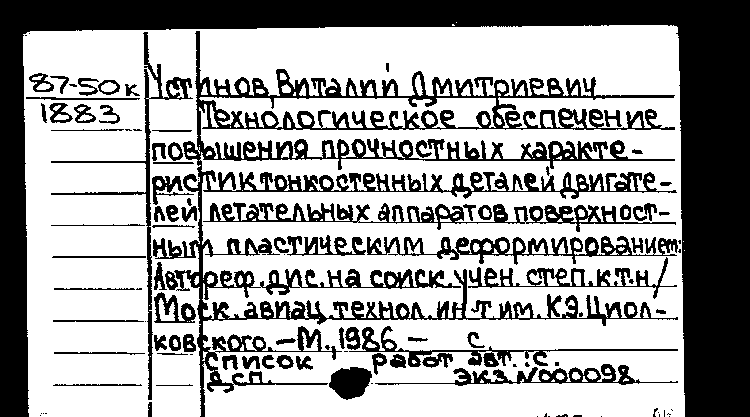 87-50к Устинов, Виталий Дмитриевич
1883 Технологическое обеспечение
повышения прочностных характе-
ристик тонкостенных деталей двигате-
лей летательных аппаратов поверхност-
ным пластическим деформированием:
Автореф. дис. на соиск. учен. степ. к.т.н/
Моск. авиац. технол. ин-т им. К.Э. Циол-
ковского. — М., 1986. — с.
Список работ авт.: с.
Дсп. Экз. N000098.